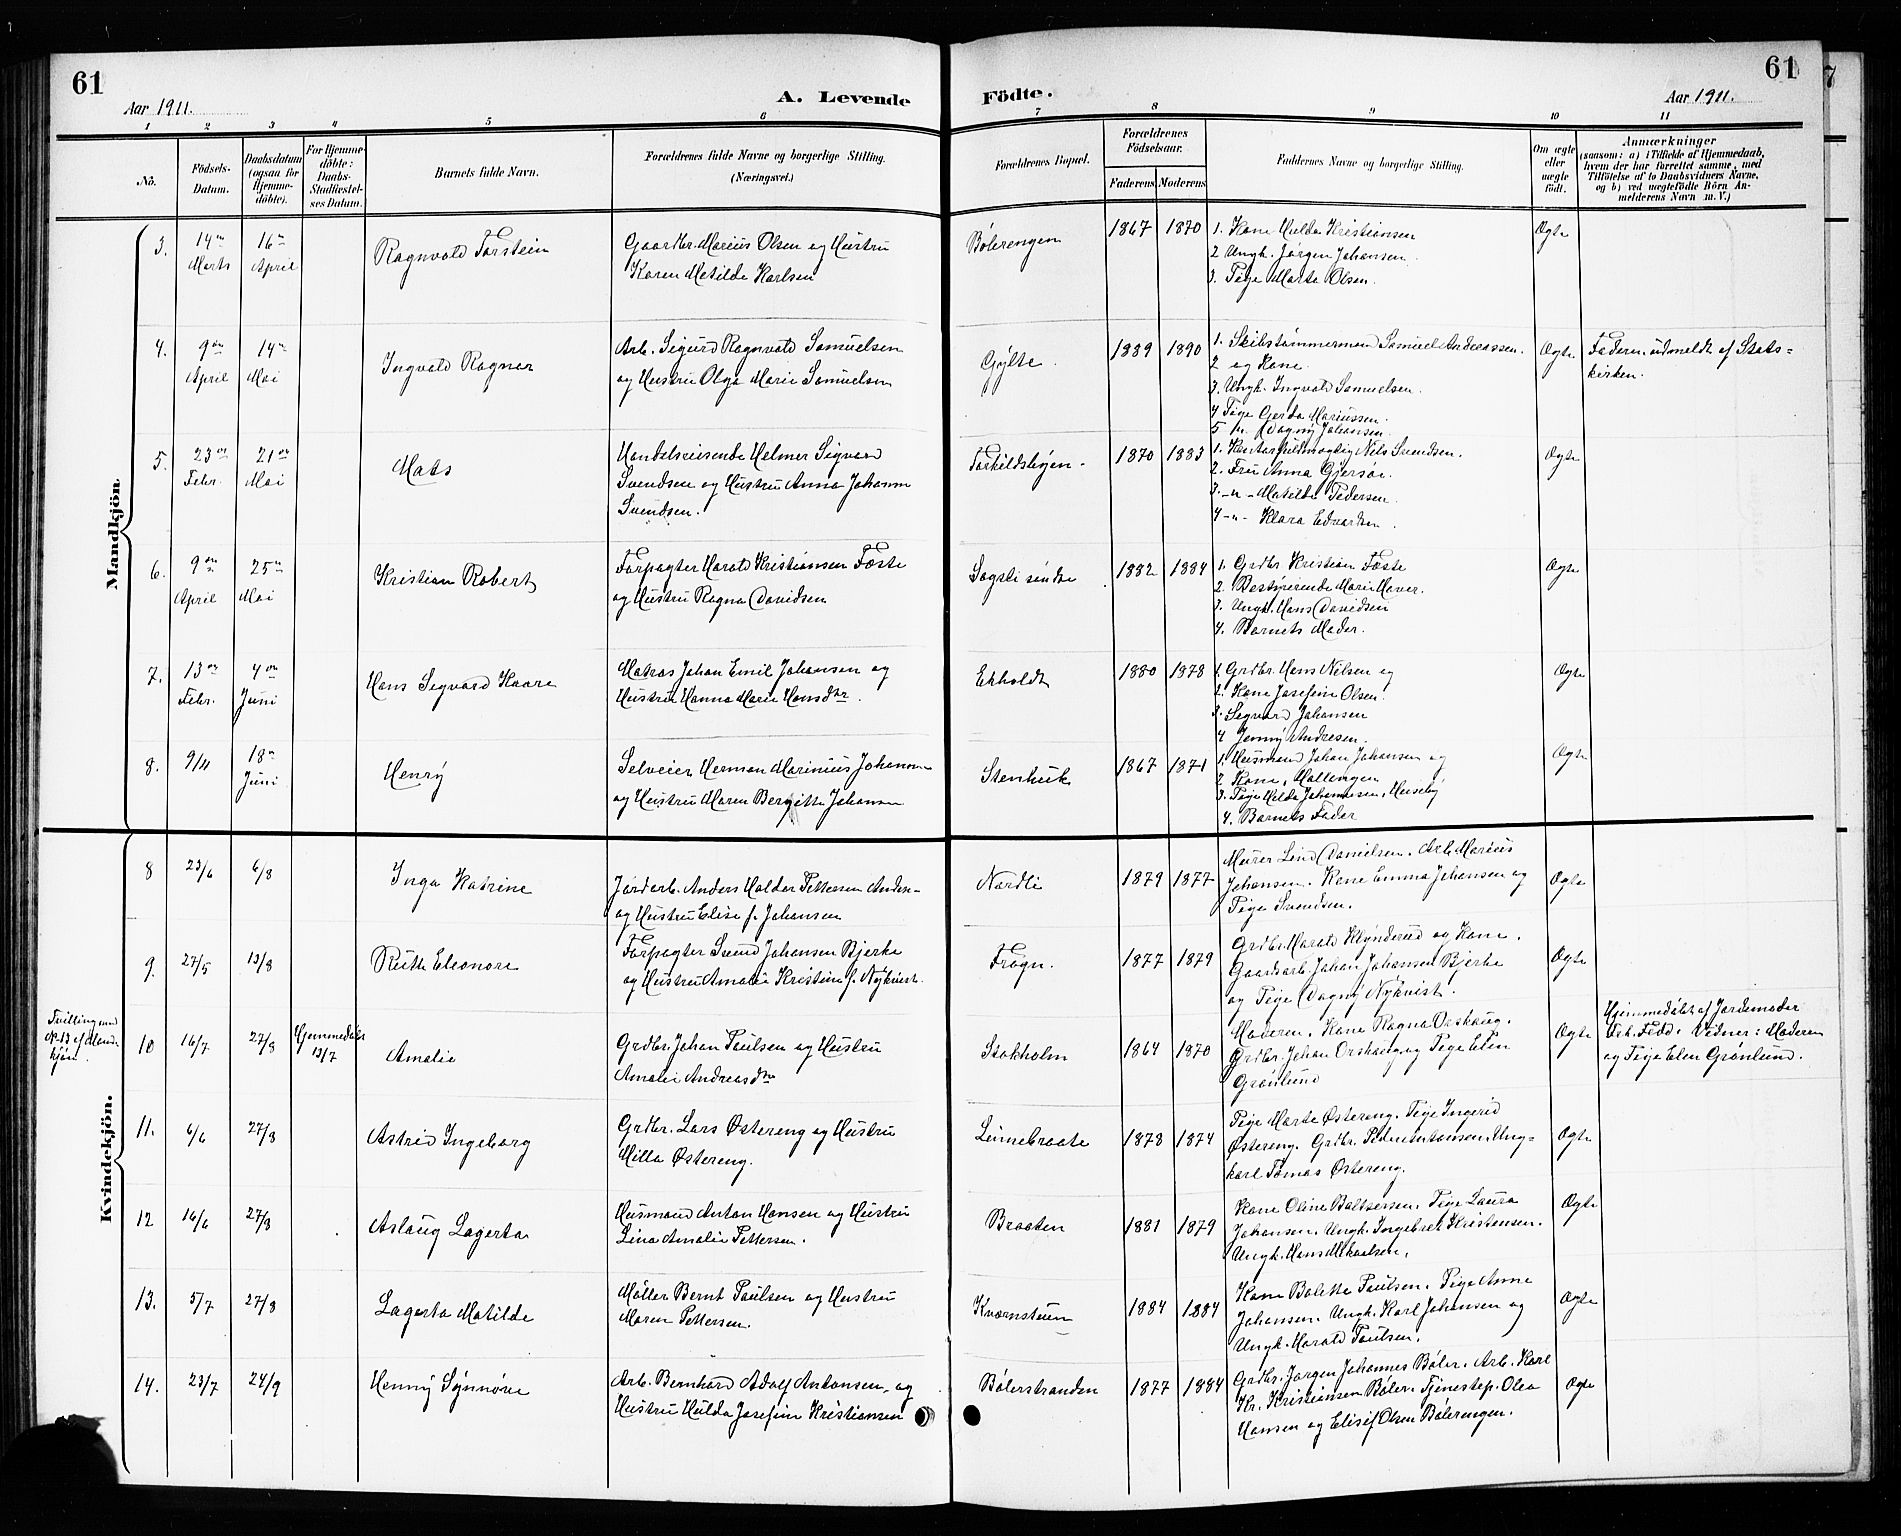 61
61
Aar 1911.
A. Levende
Födte.
Aar 1911.
1 2 3 4 5 6 7 8 9 10 11
No.
Födsels-
Datum.
Daabsdatum
(ogsaa for
Hjemme-
döbte).
For Hjemme-
döbte:
Daabs-
Stadfæstel-
ses Datum.
Barnets fulde Navn.
Forældrenes fulde Navne og borgerlige Stilling.
(Næringsvei.)
Forældrenes Bopæl.
Forældrenes
Födselsaar.
Faderens Moderens
Faddernes Navne og borgerlige Stilling.
Om ægte
eller
uægte
födt.
Anmærkninger
(saasom: a) i Tilfælde af Hjemmedaab,
hvem der har forrettet samme, med
Tilföielse af to Daabsvidners Navne,
og b) ved uægtefödte Börn An-
melderens Navn m. V.)
Mandkjön
3.
14de
Marts
16de
April
Ragnvald Torstein
Gaardbr. Marius Olsen og Hustru
Karen Matilde Karlsen
Bølerengen
1867
1870
1. Kone Hulda Kristiansen
2 Ungk. Jørgen Johansen.
3. Pige Marta Olsen.
Ægte
4.
9de
April
14de
Mai
Ingvald Ragnar
Arb. Sigurd Ragnvald Samuelsen
og Hustru Olga Marie Samuelsen
Gylte.
1889
1890
1. Skibstømmermand Samuel Andreassen.
2 og Kone.
3. Ungk. Ingvald Samuelsen.
4 Pige Gerda Mariussen.
5 " Dagny Johansen
Ægte
Faderen udmeldt af Stats=
kirken.
5.
23de
Febr.
21de
Mai
Mats
Handelsreisende Helmer Sigvard
Svendsen og Hustru Anna Johanne
Svendsen.
Torkildsbyen.
1870
1883
1. Kontorfuldmægtig Nils Svendsen.
2. Fru Anna Gjersøe.
3. -"- Matilde Pedersen.
4 -"- Klara Edvardsen.
Ægte
6.
9de
April
25de
Mai
Kristian Robert
Forpagter Harald Kristiansen Foste
og Hustru Ragna Davidsen
Sogsti søndre
1882
1884
1. Grdbr. Kristian Foste
2. Bestyrerinde Marie Haver.
3. Ungk. Hans Davidsen
4. Barnets Moder.
Ægte
7.
13de
Febr.
4de
Juni
Hans Sigvard Kaare
Matros Johan Emil Johansen og
Hustru Hanna Marie Hansdtr.
Ekholdt
1880
1878
1. Grdbr. Hans Nilsen og
2. Kone Josefine Olsen.
3. Sigvard Johansen
4 Jenny Andresen.
Ægte
8.
9/4
18de
Juni
Henry
Selveier Herman Marinius Johansen
og Hustru Maren Bergitte Johansen
Stenhuk
1867
1871
1. Husmand Johan Johansen og
2 Kone, Hallevegen
3. Pige Hilda Johannesen, Huseby
4. Barnets Fader
Ægte
Kvindekjön.
8
23/6
6/8
Inga Katrine
Jordarb. Anders Haldor Pettersen Anders-
og Hustru Elise f. Johansen
Nordli
1879
1877
Murer Lind Danielsen. Arb. Marius
Johansen. Kone Emma Johansen og
Pige Svendsen.
Ægte
9.
27/5
13/8
Ruth Eleonore
Forpagter Svend Johansen Bjerke
og Hustru Amalie Kristine f. Nykvist.
Frogn.
1877
1879
Grdbr. Harald Klynderud og Kone.
Gaardsarb. Johan Johansen Bjerke
og Pige Dagny Nykvist.
Ægte
Tvilling med
No 13 af Mand-
kjøn.
10
16/7
27/8
Hjemmedøbt
13/7
Amalie
Grdbr. Johan Paulsen og Hustru
Amalie Andreasdtr
Stokholm
1864
1870
Moderen. Kone Ragna Orshaug.
Grdbr. Johan Orshaug og Pige Elen
Grønlund
Ægte
Hjemmedøbt af Jordemoder
Vidner: Moderen
og Pige Elen Grønlund.
11.
6/6
27/8
Astrid Ingeborg
Grdbr. Lars Østereng og Hustru
Milla Østereng.
Linnebraate
1873
1874
Pige Marte Østereng. Pige Ingerid
Østereng. Grdbr. Peder Antonsen. Ung=
karl Tomas Østereng.
Ægte
12
16/6
27/8
Aslaug Lagerta
Husmand Anton Hansen og Hustru
Lina Amalie Pettersen.
Braaten
1881
1879
Kone Oline Baltsersen. Pige Laura
Johansen. Ungk. Ingebret Kristensen.
Ungk. Hans Mikaelsen.
Ægte
13.
5/7
27/8
Lagerta Matilde
Møller Bernt Paulsen og Hustru
Maren Pettersen.
Kværnstuen
1884
1884
Kone Bolette Paulsen. Pige Anne
Johansen. Ungk. Karl Johansen og
Ungk. Harald Paulsen.
Ægte
14.
23/7
24/9
Henny Synnøve
Arb. Bernhard Adolf Antonsen, og
Hustru Hulda Josefine Kristiansen
Bølerstranden
1877
1884
Grdbr. Jørgen Johannes Bøler. Arb. Karl
Kr. Kristiansen Bøler. Tjenestep. Olea
Hansen og Elisif Olsen Bølerengen.
Ægte